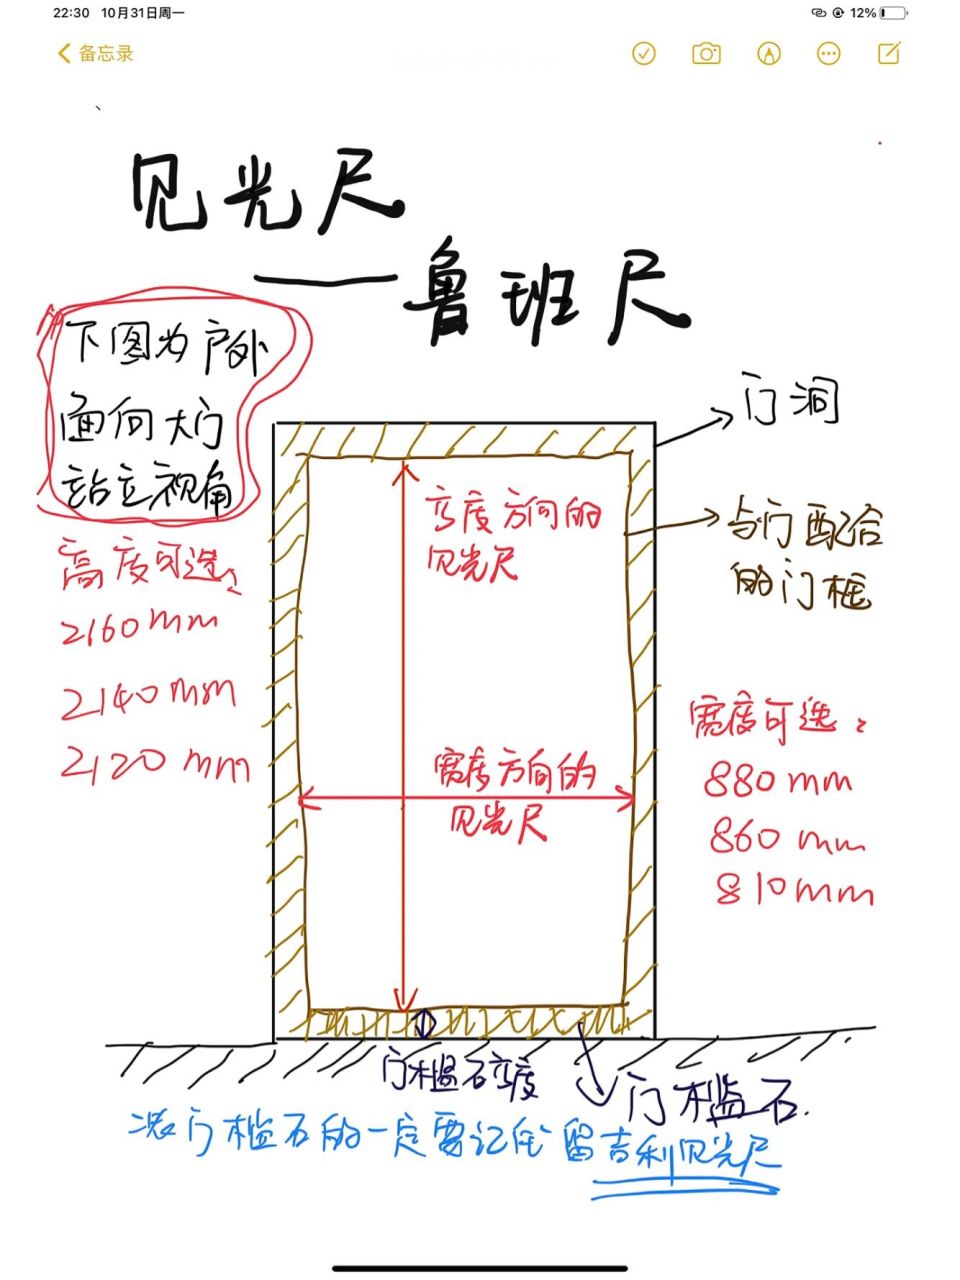 22:30 10月31日周一
12%
备忘录
见光尺
——鲁班尺
下图为户外
面向大门
站立视角
门洞
高度方向的
见光尺
与门配合
的门框
高度可选:
2160mm
2140mm
2120mm
宽度可选:
880mm
860mm
810mm
宽度方向的
见光尺
门槛石高度
门槛石.
装门槛石的一定要记住留吉利见光尺